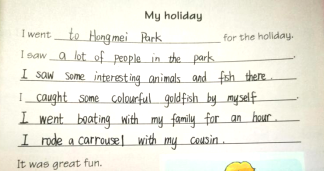 My holiday
I went to Hongmei Park for the holiday.
I saw a lot of people in the park.
I saw some interesting animals and fish there.
I caught some colourful goldfish by myself.
I went boating with my family for an hour.
I rode a carrousel with my cousin.
It was great fun.